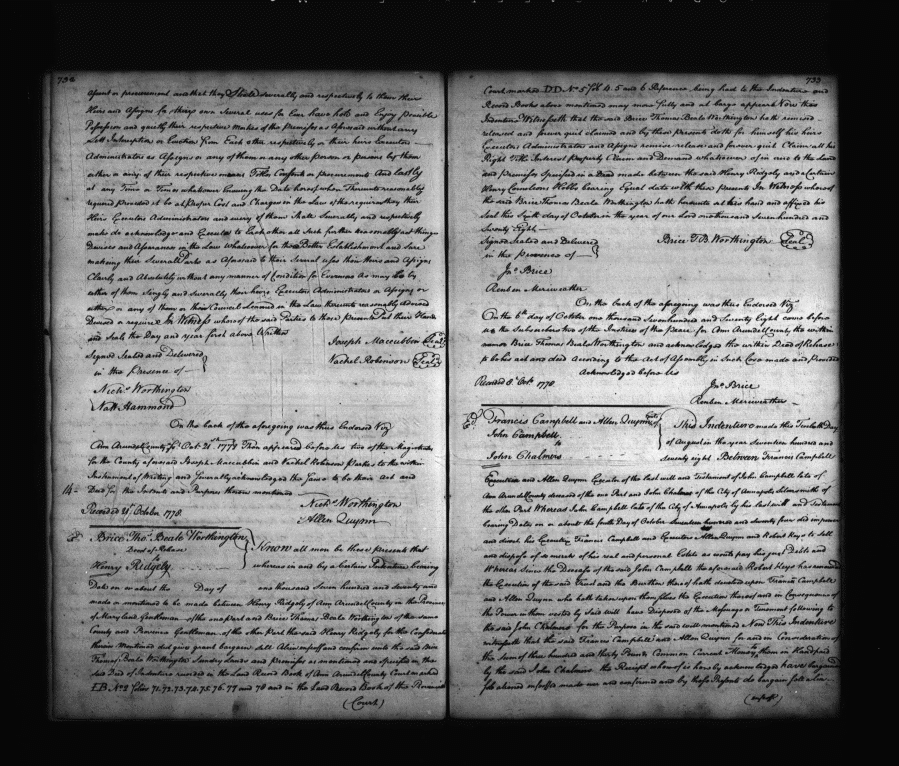 732
apart or procurement and that they shall severally and respectively to them their
Heirs and Assigns for theirs own Several uses for Ever have hold and Enjoy Peaceable
Possession and quietly their respective Moities of the Premises as aforesaid without any
Lett Interruption or Eviction from Each other respectively or their heirs Executors
Administrators or Assigns or any of them or any other person or persons by them
either or any of their respective means Title Consent or procurement And lastly
at any Time or Times whatsoever hereunto reasonably
required provided it be at Proper Cost and Charges in the Law of the require they their
Heirs Executors Administrators and every of them Shall Severally and respectively
make do acknowledge and Execute to Each other all Such further reasonable
Devices and Assurances in the Law Whatsoever for the Better Establishment and Sure
making their Several Parts as Aforesaid to their Several uses their Heirs and Assigns
Clearly and Absolutely without any manner of Condition for Evermore as may be by
either of them Singly and Severally their heirs Executors Administrators or Assigns or
either or any of them or their Council Learned in the Law thereunto reasonably advised
Devised or required In Witness whereof the said Parties to these presents set their Hands
and Seals the Day and year first above Written
Signed Sealed and Delivered
in the presence of
Joseph Maccubbin Seal
Vachel Robinson Seal
Nichs. Worthington
Natt Hammond
On the back of the aforegoing was thus Endorsed Viz
Ann Arundel County Oct. 21st 1778 Then appeared before us two of the Magistrates
for the County aforesaid Joseph Maccubbin and Vachel Robinson Parties to the within
Instrument of Writing and Severally acknowledged the Same to be their Act and
Deed for the Intents and Purposes therein mentioned
Nichs. Worthington
Allen Quynn
Recorded 21st October 1778.
Brice Thos. Beale Worthington
Deed of Release
Henry Ridgely
Know all men be these presents that
whereas in and by a Certain Indenture bearing
Date on or about the Day of one thousand Seven hundred and seventy and
made or mentioned to be made between Henry Ridgely of Ann Arundel County in the Province
of Maryland Gentleman of the one part and Brice Thomas Beale Worthington of the same
County and Province Gentleman of the other Part the said Henry Ridgely for the Consideration
therein Mentioned did give grant bargain sell Alien enfeoff and confirm unto the said Brice
Thomas Beale Worthington Sundry Lands and premises as mentioned and specified in the
said Deed of Indenture recorded in the Land Record Book of Ann Arundel County Court marked
I.B. No. 2 folios 71.72.73.74.75.76.77 and 78 and in the Land Record Book of the Provincial
(Court)
733
Court marked DD No. 5 fol 4.5 and 6 Reference being had to the Indenture and
Record Books above mentioned may more fully and at large appear Now this
Indenture Witnesseth that the said Brice Thomas Beale Worthington hath remised
released and forever quit claimed and by these presents doth for himself his heirs
Executors Administrators and Assigns remise release and forever quit Claim all his
Right Title Interest Property Claim and Demand whatsoever of in and to the Land
and premises Specified in a Deed made between the said Henry Ridgely and a Certain
Henry Hobbs bearing Equal date with these presents In Witness whereof
the said Brice Thomas Beale Worthington hath hereunto set his hand and affixed his
Seal this Sixth day of October in the year of our Lord one thousand Seven hundred and
Seventy Eight
Signed Sealed and Delivered
in the presence of
Brice T. B. Worthington Seal
Jno. Brice
Reuben Meriweather
On the back of the aforegoing was thus Endorsed Viz
On the 6th day of October one thousand Seven hundred and Seventy Eight came before
us the Subscribers two of the Justices of the Peace for Ann Arundel County the within
named Brice Thomas Beale Worthington and acknowledged the within Deed of Release
to be his act and deed According to the Act of Assembly in Such Case made and provided
Acknowledged before Us
Recorded 8th Octr. 1778.
Jno. Brice
Reuben Meriweather
Francis Campbell and Allen Quynn
John Campbell
to
John Chalmers
This Indenture made this Tenth Day
of August in the year seventeen hundred and
seventy eight Between Francis Campbell
Executrix and Allen Quynn Executor of the last will and Testament of John Campbell late of
Ann Arundel County deceased of the one Part and John Chalmers of the City of Annapolis Silversmith of
the other Part Whereas John Campbell late of the City of Annapolis by his last will and Testament
bearing Date on or about the fourth Day of October seventeen hundred and seventy four did impower
and direct his Executrix Francis Campbell and Executors Allen Quynn and Robert Keys to sell
and dispose of so much of his real and personal Estate as would pay his just Debts and
Whereas Since the Decease of the said John Campbell the aforesaid Robert Keys has renounced
the Execution of the said Trust and the Burthen thereof hath devolved upon Francis Campbell
and Allen Quynn who hath taken upon themselves the Execution thereof and in Consequence of
the Power in them vested by said will have Disposed of the Messuage or Tenement following to
the said John Chalmers for the Purposes in the said will mentioned Now This Indenture
witnesseth that the said Francis Campbell and Allen Quynn for and in Consideration of
the Sum of three hundred and thirty Pounds Common Current Money to them in Hand paid
by the said John Chalmers the Receipt whereof is hereby acknowledged have bargained
sold aliened enfeoffed made over and confirmed and by these Presents do bargain sell alien
(enfeoff)